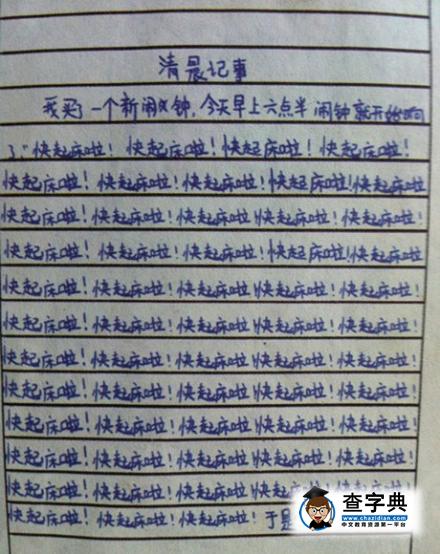 清晨记事
我买了一个新闹钟,今天早上六点半闹钟就开始响
了:"快起床啦!快起床啦!快起床啦!快起床啦!
快起床啦!快起床啦!快起床啦!快起床啦!快起床啦
快起床啦!快起床啦!快起床啦!快起床啦!快起床啦
快起床啦!快起床啦!快起床啦!快起床啦!快起床啦
快起床啦!快起床啦!快起床啦!快起床啦!快起床啦!
快起床啦!快起床啦!快起床啦!快起床啦!快起床啦!
快起床啦!快起床啦!快起床啦!快起床啦!快起床啦!
快起床啦!快起床啦!快起床啦!快起床啦!快起床啦!
快起床啦!快起床啦!快起床啦!快起床啦!快起床啦!
快起床啦!快起床啦!快起床啦!快起床啦!快起床啦!
快起床啦!快起床啦!快起床啦!快起床啦!快起床啦!
快起床啦!快起床啦!快起床啦!于是
查字典
中文教育资源第一平台
www.chazidian.com